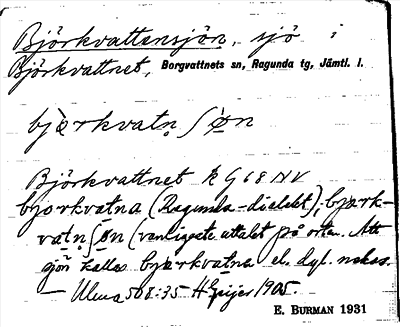 Björkvattensjön, sjö i
Björkvattnet, Borgvattnets sn, Ragunda tg, Jämtl. l.
bjo̤rkvatn̥ ʃøn
Björkvattnet k G 68 NV
bjorkvatna (Ragunda-dialekt), bjork-
vatn̥ʃøn (vanligaste uttalet på orten. Att
sjön kallas bjorkvatna el. dyl. nekas.
— Ulma 568:35 H Geijer 1905
E. BURMAN 1931